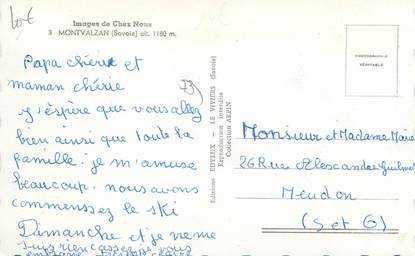 10€
Images de Chez Nous
3 MONTVALZAN (Savoie) alt. 1180 m.
Papa chérie et
maman chérie
73
J'éspère que vous allez
bien ainsi que toute la
famille. je m'amuse
beaucoup. nous avons
commensser le ski
Dimanche et je ne me
suis rien casser je vous
Editions EDYLUX - LE VIVIERS (Savoie)
Reproduction interdite
Collection AEPIN
PHOTOGRAPHIE
VÉRITABLE
Monsieur et Madame Marie
26 Rue Alescandre Guilmant
Meudon
(S et O)